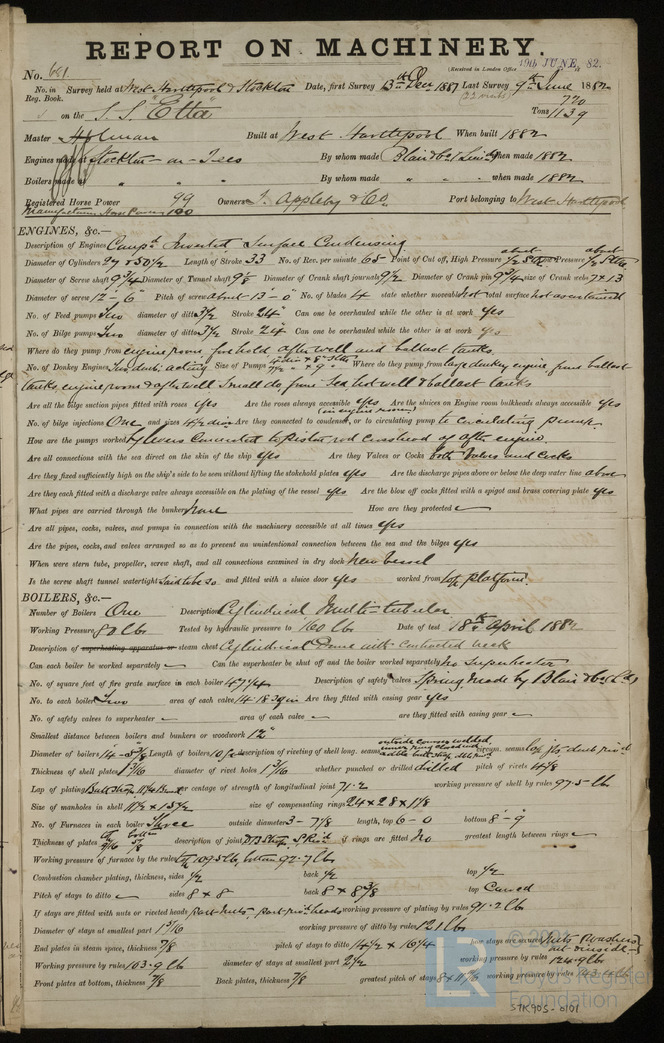 REPORT ON MACHINERY.
No. 681 (Received in London Office 19th JUNE, 82.
No. in Survey held at West Hartlepool & Stockton Date, first Survey 13th Dec 1881 Last Survey 9th June 1882
Reg. Book. (22 visits)
on the S.S. "Etta" Tons 770 1139
Master Holman Built at West Hartlepool When built 1882
Engines made at Stockton-on-Tees By whom made Blair & Co Limd when made 1882
Boilers made at " " " By whom made " " when made 1882
Registered Horse Power 99 Owners J. Appleby & Co. Port belonging to West Hartlepool
Manufacturers Horse Power 100
ENGINES, &c.—
Description of Engines Compd Inverted Surface Condensing
Diameter of Cylinders 27 & 50 1/2 Length of Stroke 33 No. of Rev. per minute 65 Point of Cut off, High Pressure about 1/2 Stroke Low Pressure about 1/2 Stroke
Diameter of Screw shaft 9 3/4 Diameter of Tunnel shaft 9 1/8 Diameter of Crank shaft journals 9 1/2 Diameter of Crank pin 9 3/4 size of Crank webs 7 x 13
Diameter of screw 12-6" Pitch of screw about 13-0" No. of blades 4 state whether moveable Not total surface Not ascertained
No. of Feed pumps Two diameter of ditto 3 1/2 Stroke 24" Can one be overhauled while the other is at work yes
No. of Bilge pumps Two diameter of ditto 3 1/2 Stroke 24" Can one be overhauled while the other is at work yes
Where do they pump from engine room, forehold, after well and ballast tanks.
No. of Donkey Engines Two, doub: acting Size of Pumps Where do they pump from large donkey engine from ballast
tanks, engine room & after well. Small do from Sea, hot well & ballast tanks
Are all the bilge suction pipes fitted with roses yes Are the roses always accessible yes Are the sluices on Engine room bulkheads always accessible yes
No. of bilge injections One and sizes 4 1/2 dia Are they connected to condenser, or to circulating pump to circulating pump.
How are the pumps worked by levers connected to piston rod crosshead of after engine.
Are all connections with the sea direct on the skin of the ship yes Are they Valves or Cocks both Valves and Cocks
Are they fixed sufficiently high on the ship's side to be seen without lifting the stokehold plates yes Are the discharge pipes above or below the deep water line above
Are they each fitted with a discharge valve always accessible on the plating of the vessel yes Are the blow off cocks fitted with a spigot and brass covering plate yes
What pipes are carried through the bunkers None How are they protected —
Are all pipes, cocks, valves, and pumps in connection with the machinery accessible at all times yes
Are the pipes, cocks, and valves arranged so as to prevent an unintentional connection between the sea and the bilges yes
When were stern tube, propeller, screw shaft, and all connections examined in dry dock New Vessel
Is the screw shaft tunnel watertight said to be so and fitted with a sluice door yes worked from top platform.
BOILERS, &c.—
Number of Boilers One Description Cylindrical Multi-tubular
Working Pressure 80 lbs Tested by hydraulic pressure to 160 lbs Date of test 18th April 1882
Description of superheating apparatus or steam chest Cylindrical Dome with contracted neck
Can each boiler be worked separately — Can the superheater be shut off and the boiler worked separately No Superheater
No. of square feet of fire grate surface in each boiler 47 1/4 Description of safety valves Spring, made by Blair & Co Ld
No. to each boiler Two area of each valve 14.18 sq in Are they fitted with easing gear yes
No. of safety valves to superheater — area of each valve — are they fitted with easing gear —
Smallest distance between boilers and bunkers or woodwork 12"
Diameter of boilers 14-5 3/8 Length of boilers description of riveting of shell long. seams circum. seams
Thickness of shell plates 1 3/16 diameter of rivet holes 1 3/16 whether punched or drilled drilled pitch of rivets 4 5/8
Lap of plating per centage of strength of longitudinal joint 71.2 working pressure of shell by rules 97.5 lb
Size of manholes in shell 11 1/2 x 15 1/2 size of compensating rings 24 x 28 x 1 1/8
No. of Furnaces in each boiler Three outside diameter 3-7 7/8 length, top 6-0 bottom 8-9
Thickness of plates top 9/16 bottom 5/8 description of joint if rings are fitted No greatest length between rings —
Working pressure of furnace by the rules top 109.5 lb, bottom 92.7 lb
Combustion chamber plating, thickness, sides 1/2 back 1/2 top 1/2
Pitch of stays to ditto — sides 8 x 8 back 8 x 8 3/8 top Curved
If stays are fitted with nuts or riveted heads Part nuts, part rivd heads working pressure of plating by rules 91.2 lb
Diameter of stays at smallest part 1 5/16 working pressure of ditto by rules 121 lbs
End plates in steam space, thickness 7/8 pitch of stays to ditto 14 1/2 x 16 1/4 how stays are secured Nuts & washers
Working pressure by rules 103.9 lb diameter of stays at smallest part 2 1/2 working pressure by rules 124.9 lbs
Front plates at bottom, thickness 7/8 Back plates, thickness 7/8 greatest pitch of stays working pressure by rules
© 2021
LR
Lloyd's Register
Foundation
STK905-0101